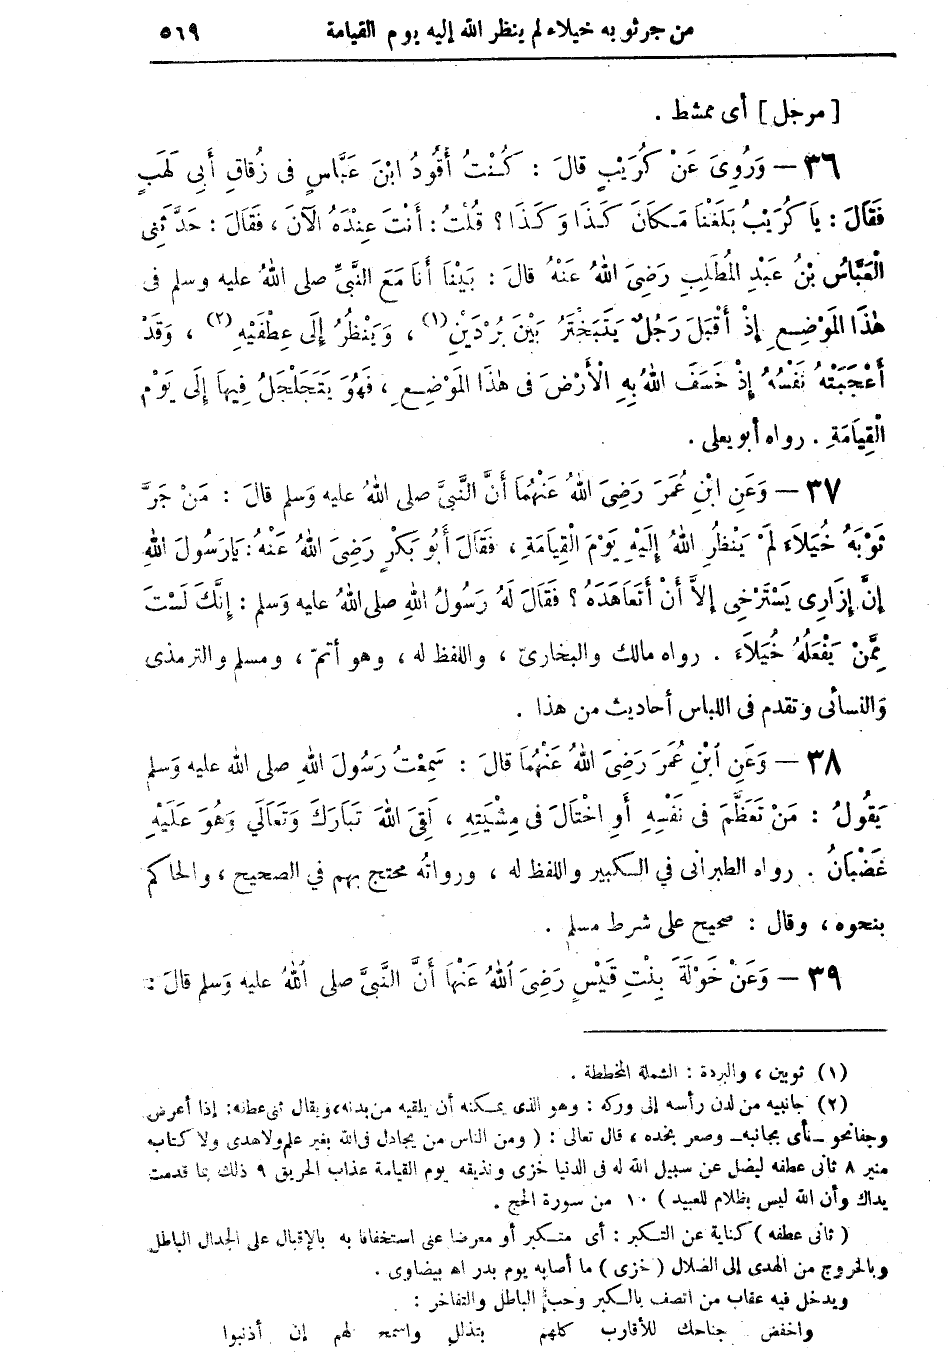 من جر ثوبه خيلاء لم ينظر الله إليه يوم القيامة ٥٦٩
[ مرجل ] أى ممشط .
٣٦ — وَرُوِىَ عَنْ كُرَيْبٍ قالَ : كُنْتُ أَقُودُ ابْنَ عَبَّاسٍ فى زُقاقِ أَبِي لَهَبٍ
فَقَالَ : يَا كُرَيْبُ بَلَغْنَا مَكَانَ كَذَا وَكَذَا ؟ قُلْتُ : أَنْتَ عِنْدَهُ الآنَ ، فَقَالَ : حَدَّثَنِى
الْعَبَّاسُ بْنُ عَبْدِ الْمُطَّلِبِ رَضِىَ اللهُ عَنْهُ قالَ : بَيْنَا أَنَا مَعَ النَّبِىِّ صلى اللهُ عليه وسلم فى
هٰذَا الْمَوْضِعِ إِذْ أَقْبَلَ رَجُلٌ يَتَبَخْتَرُ بَيْنَ بُرْدَيْنِ (١) ، وَيَنْظُرُ إِلَى عِطْفَيْهِ (٢) ، وَقَدْ
أَعْجَبَتْهُ نَفْسُهُ إِذْ خَسَفَ اللهُ بِهِ الْأَرْضَ فى هٰذَا الْمَوْضِعِ ، فَهُوَ يَتَجَلْجَلُ فِيهَا إِلَى يَوْمِ
الْقِيَامَةِ . رواه أبو يعلى .
٣٧ — وَعَنِ ابْنِ عُمَرَ رَضِىَ اللهُ عَنْهُمَا أَنَّ النَّبِىَّ صلى اللهُ عليه وَسلم قالَ : مَنْ جَرَّ
ثَوْبَهُ خُيَلاَءَ لَمْ يَنْظُرِ اللهُ إِلَيْهِ يَوْمَ الْقِيَامَةِ ، فَقَالَ أَبُو بَكْرٍ رَضِىَ اللهُ عَنْهُ : يَارَسُولَ اللهِ
إِنَّ إِزَارِى يَسْتَرْخِى إِلاَّ أَنْ أَتَعَاهَدَهُ ؟ فَقَالَ لَهُ رَسُولُ اللهِ صلى اللهُ عليه وَسلم : إِنَّكَ لَسْتَ
مِمَّنْ يَفْعَلُهُ خُيَلَاءَ . رواه مالك والبخارىّ ، واللفظ له ، وهو أتمّ ، ومسلم والترمذى
وَالنسائى وتقدم فى اللباس أحاديث من هذا .
٣٨ — وَعَنِ ابْنِ عُمَرَ رَضِىَ اللهُ عَنْهُمَا قالَ : سَمِعْتُ رَسُولَ اللهِ صلى الله عليه وَسلم
يَقُولُ : مَنْ تَعَظَّمَ فى نَفْسِهِ أَوِ اخْتَالَ فى مِشْيَتِهِ ، لَقِىَ اللهَ تَبَارَكَ وَتَعَالَي وَهُوَ عَلَيْهِ
غَضْبَانُ . رواه الطبرانى في الكبير واللفظ له ، ورواتُه محتج بهم في الصحيح ، والحاكم
بنحوه ، وقال : صحيح على شرط مسلم .
٣٩ — وَعَنْ خَوْلَةَ بِنْتِ قَيْسٍ رَضِىَ اللهُ عَنْهَا أَنَّ النَّبِىَّ صلى اللهُ عليه وَسلم قالَ :
(١) ثوبين ، والبردة : الشملة المخططة .
(٢) جانبيه من لدن رأسه إلى وركه : وهو الذى يمكنه أن يلقيه من بدنه ، ويقال ثنى عطفه : إذا أعرض
وجفا نحو — نأى بجانبه — وصعر بخده ، قال تعالى : ( ومن الناس من يجادل فى الله بغير علم ولا هدى ولا كتاب
منير ٨ ثانى عطفه ليضل عن سبيل الله له فى الدنيا خزى ونذيقه يوم القيامة عذاب الحريق ٩ ذلك بما قدمت
يداك وأن الله ليس بظلام للعبيد ) ١٠ من سورة الحج .
( ثانى عطفه ) كناية عن التكبر : أى متكبر أو معرضا عنى استخفافا به بالإقبال على الجدال الباطل
وبالخروج من الهدى إلى الضلال ( خزى ) ما أصابه يوم بدر اهـ بيضاوى .
ويدخل فيه عقاب من اتصف بالكبر وحب الباطل والتفاخر :
واخفض جناحك للأقارب كلهم بتذلل واسمح لهم إن أذنبوا